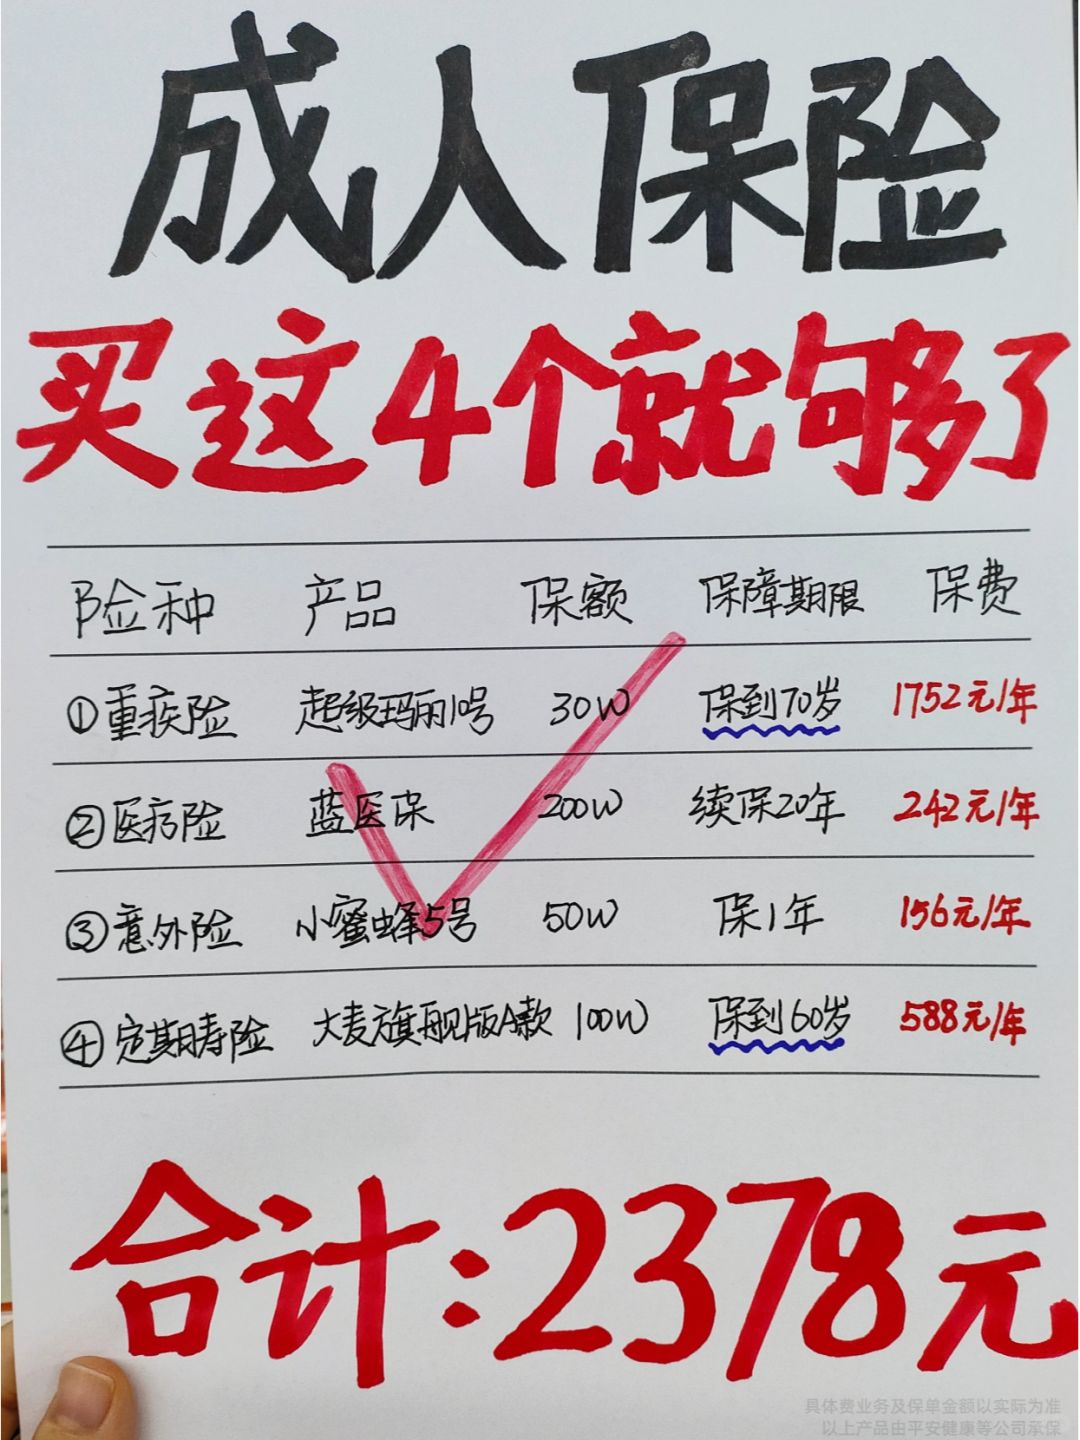 成人保险
买这4个就够了
险种 产品 保额 保障期限 保费
①重疾险 超级玛丽10号 30W 保到70岁 1752元/年
②医疗险 蓝医保 200W 续保20年 242元/年
③意外险 小蜜蜂5号 50W 保1年 156元/年
④定期寿险 大麦旗舰版A款 100W 保到60岁 588元/年
合计:2378元
具体费业务及保单金额以实际为准
以上产品由平安健康等公司承保